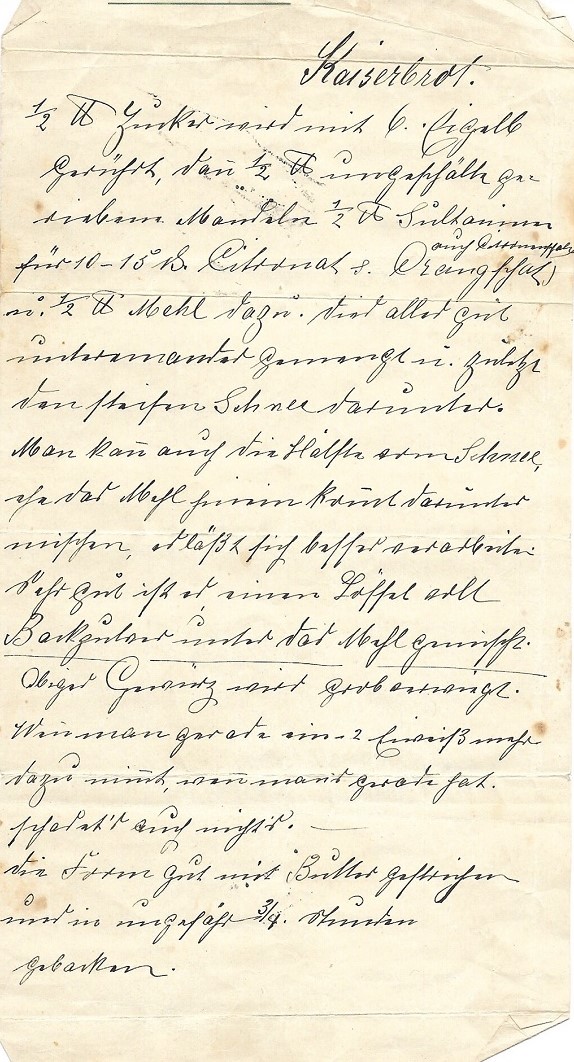 Kaiserbrot.
½ ℔ Zucker wird mit 6. Eigelb
gerührt, dan̄ ½ ℔ ungeschälte ge-
riebene Mandeln ½ ℔ Sultaninen
auch Citronenschale
für 10-15 ₰. Citronat o. Orangschat)
u. ½ ℔ Mehl dazu. dies alles gut
untereinander gemengt u. zuletzt
den steifen Schnee darunter.
Man kan̄ auch die Hälfte vom Schnee,
ehe das Mehl hinein kom̄t darunter
mischen, es läßt sich besser verarbeiten
Sehr gut ist es, einen Löffel voll
Backpulver unter das Mehl gemischt.
Obiges Gewürz wird grob verwiegt.
Wen̄ man gerade ein-2 Eiweiß mehr
dazu nim̄t, wen̄ mans gerade hat.
schadet's auch nichts. —
die Form gut mit Butter gestrichen
und in ungefähr ¾. Stunden
gebacken.